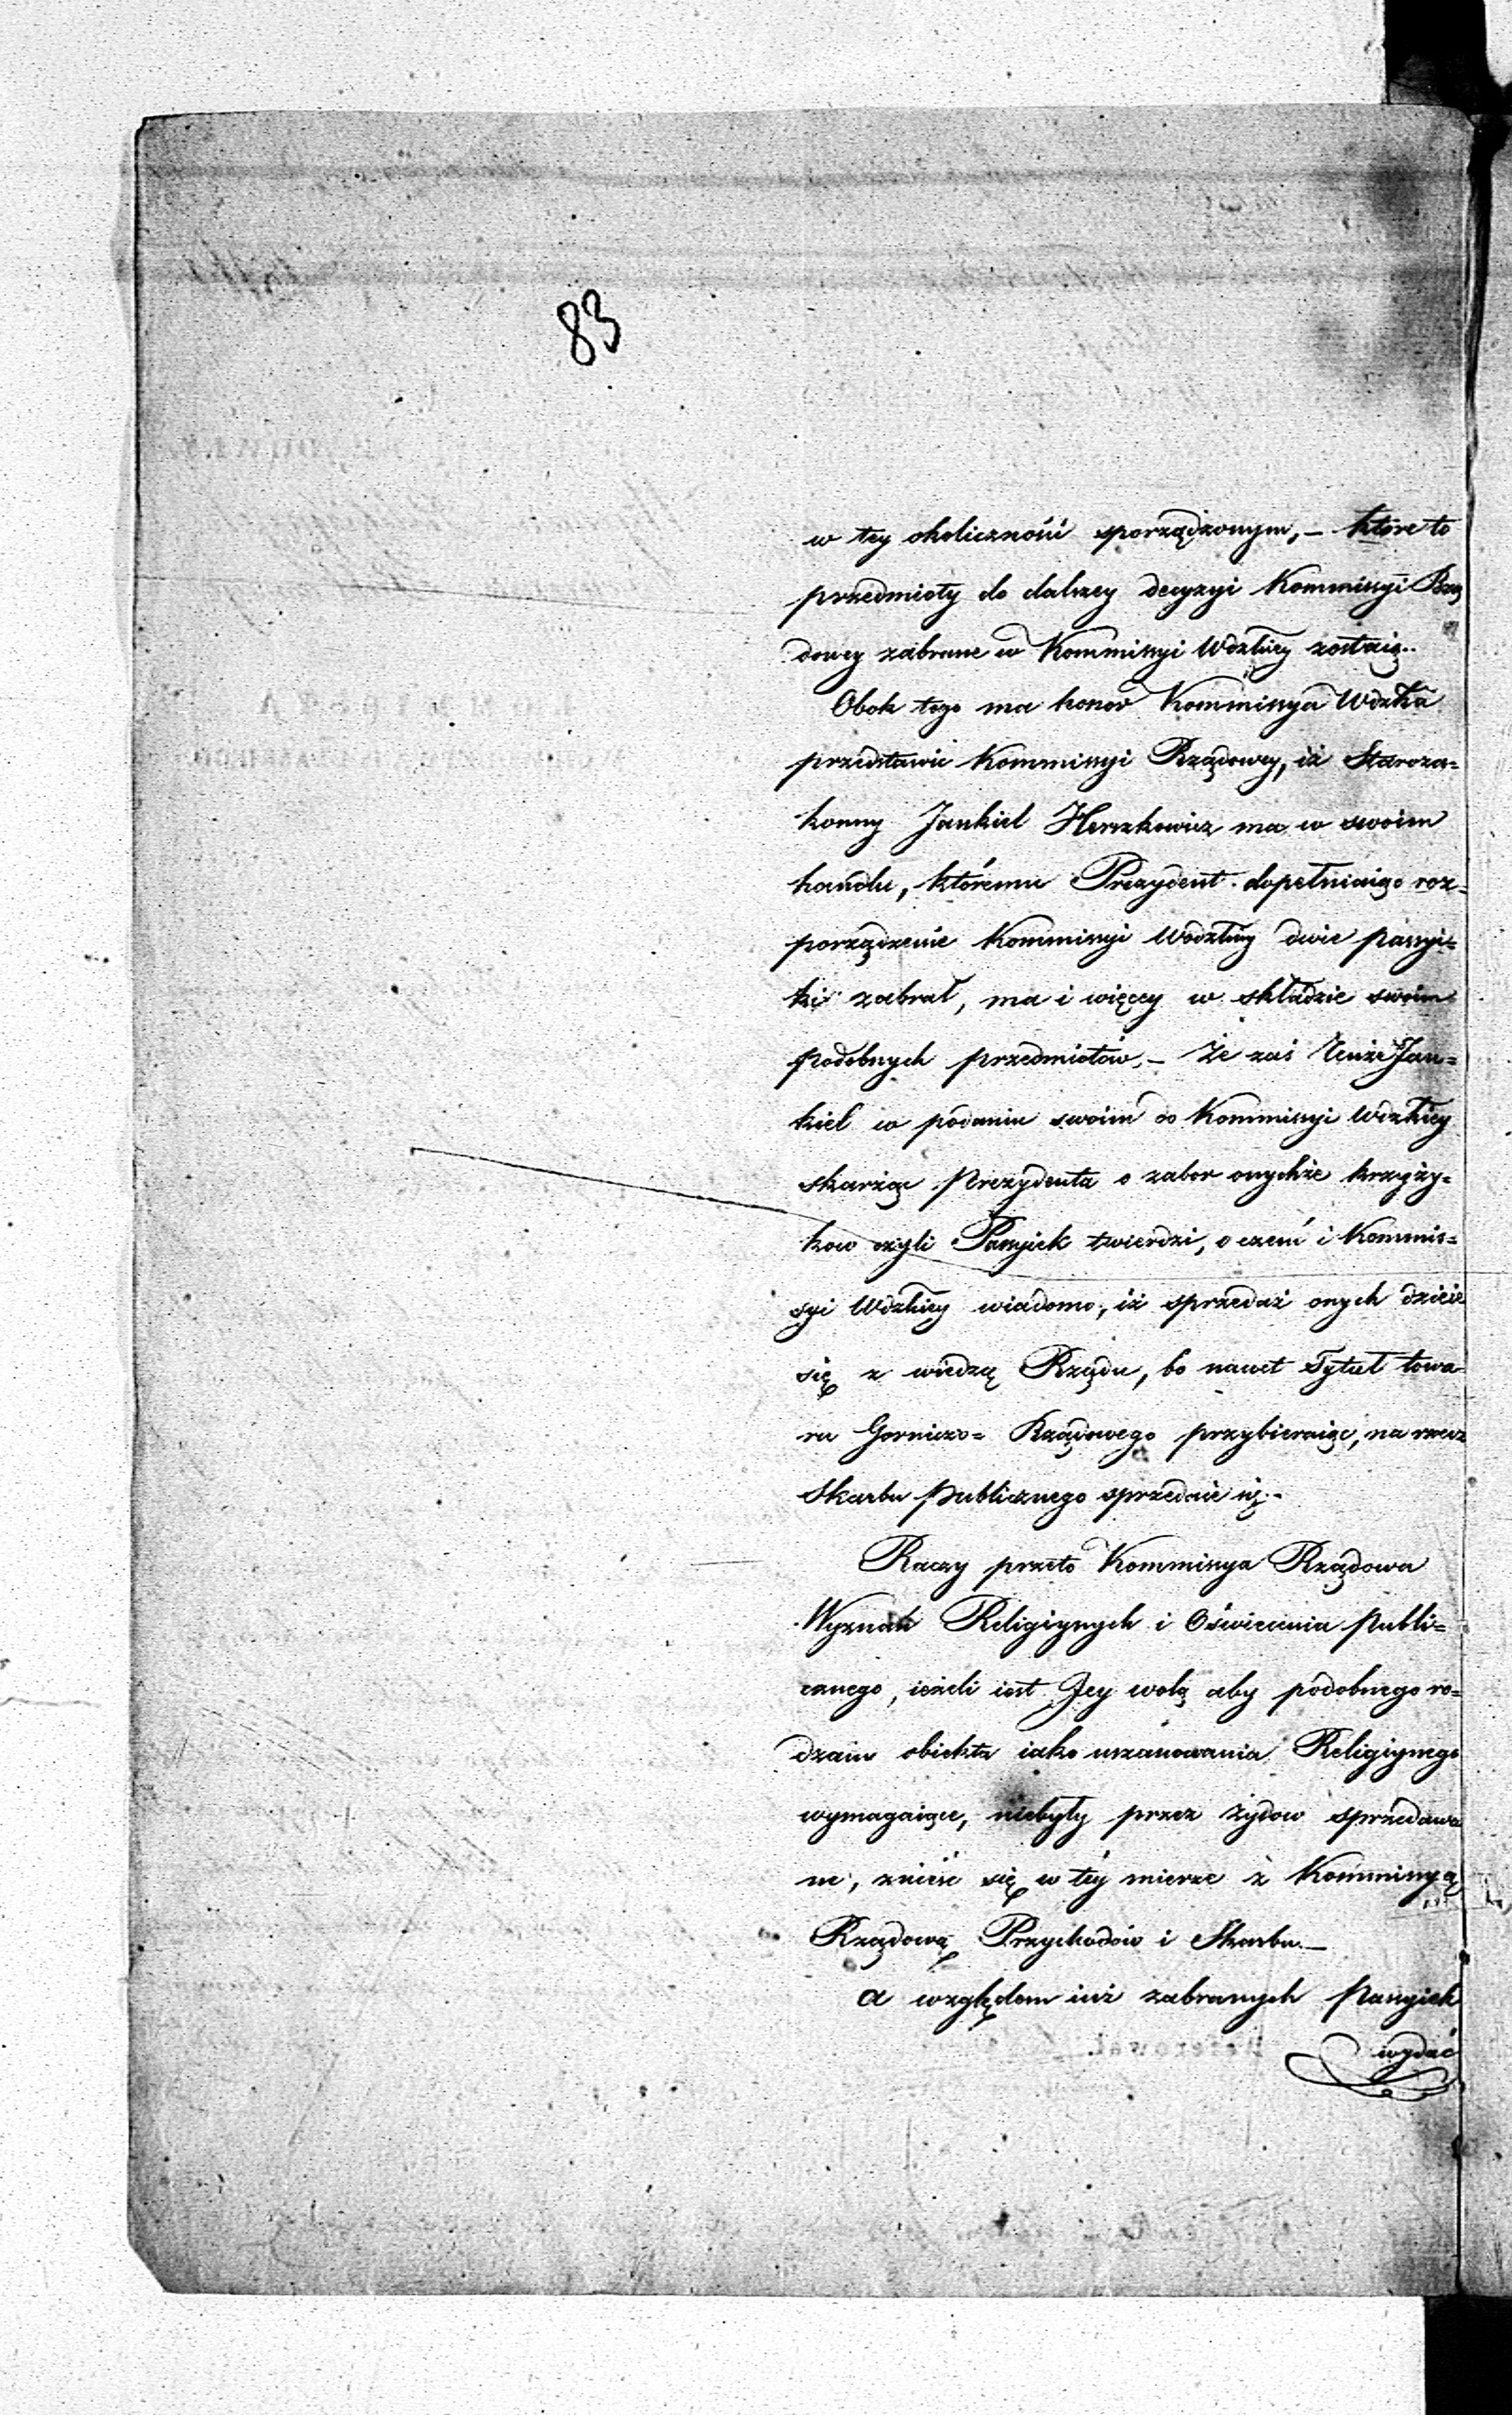 83
w tey okoliczności sporządzonym, – które to
przedmioty do dalszey decyzyi Kommissyi Rzą
dowey zabrane w Kommissyi Wdzkiey zostaią.
Obok tego ma honor Kommissya Wdzka
przedstawić Kommissyi Rządowey, iż Staroza=
konny Jankiel Herszkowicz ma w swoim
handlu, któremu Prezydent dopełniaiąc roz=
porządzenie Kommissyi Wdzkiey dwie passyi=
ki zabrał, ma i więcey w składzie swoim
podobnych przedmiotów. – Że zaś tenże Jan=
kiel w podaniu swoim do Kommissyi Wdzkiey
skarżąc Prezydenta o zabor onychże krzyży=
kow czyli Passyiek twierdzi, o czem i Kommis=
syi Wdzkiey wiadomo, iż sprzedaż onych dzieie
się z wiedzą Rządu, bo nawet Tytuł towa
ru Gorniczo= Rządowego przybieraiąc, na rzecz
Skarbu Publicznego sprzedaie się. –
Raczy przeto Kommissya Rządowa
Wyznań Religiynych i Oświecenia Publi=
cznego, ieżeli iest Jey wolą aby podobnego ro=
dzaiu obiekta iako uszanowania Religiynego
wymagaiące, niebyły przez żydow sprzedawa
ne, znieść się w téy mierze z Kommissyą
Rządową Przychodów i Skarbu. –
a względem iuż zabranych Passyiek
wydać